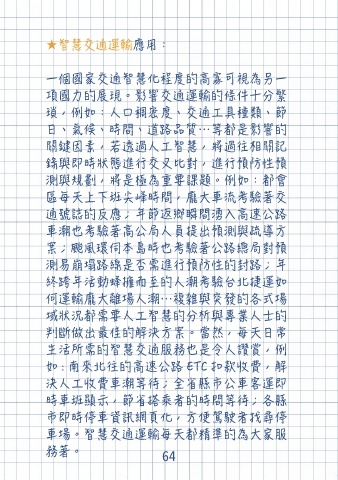 ★智慧交通運輸應用：
一個國家交通智慧化程度的高寡可視為另一
項國力的展現。影響交通運輸的條件十分繁
瑣，例如：人口稠密度、交通工具種類、節
日、氣候、時間、道路品質…等都是影響的
關鍵因素，若透過人工智慧，將過往相關記
錄與即時狀態進行交叉比對，進行預防性預
測與規劃，將是極為重要課題。例如：都會
區每天上下班尖峰時間，龐大車流考驗著交
通號誌的反應；年節返鄉瞬間湧入高速公路
車潮也考驗著高公局人員提出預測與疏導方
案；颱風環伺本島時也考驗著公路總局對預
測易崩塌路線是否需進行預防性的封路；年
終跨年活動蜂擁而至的人潮考驗台北捷運如
何運輸龐大離場人潮…複雜與突發的各式場
域狀況都需要人工智慧的分析與專業人士的
判斷做出最佳的解決方案。當然，每天日常
生活所需的智慧交通服務也是令人讚賞，例
如：南來北往的高速公路 ETC 扣款收費，解
決人工收費車潮等待；全省縣市公車客運即
時車班顯示，節省搭乘者的時間等待；各縣
市即時停車資訊網頁化，方便駕駛者找尋停
車場。智慧交通運輸每天都精準的為大家服
務著。
64